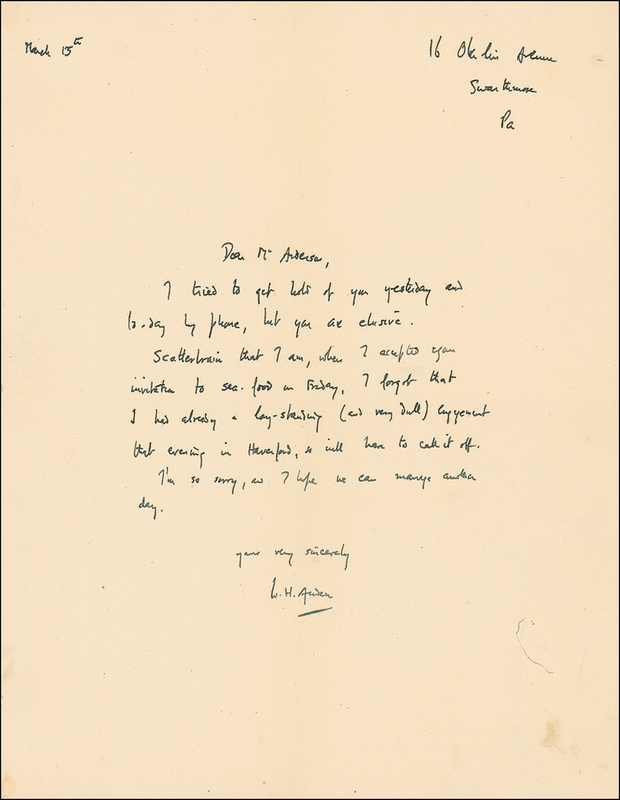 March 15th
16 Oberlin Avenue
Swarthmore
Pa
Dear Mr Anderson,
I tried to get hold of you yesterday and
to-day by phone, but you are elusive.
Scatterbrain that I am, when I accepted your
invitation to sea-food on Friday, I forgot that
I had already a long-standing (and very dull) engagement
that evening in Haverford, so will have to call it off.
I'm so sorry, and I hope we can manage another
day.
yours very sincerely
W.H. Auden